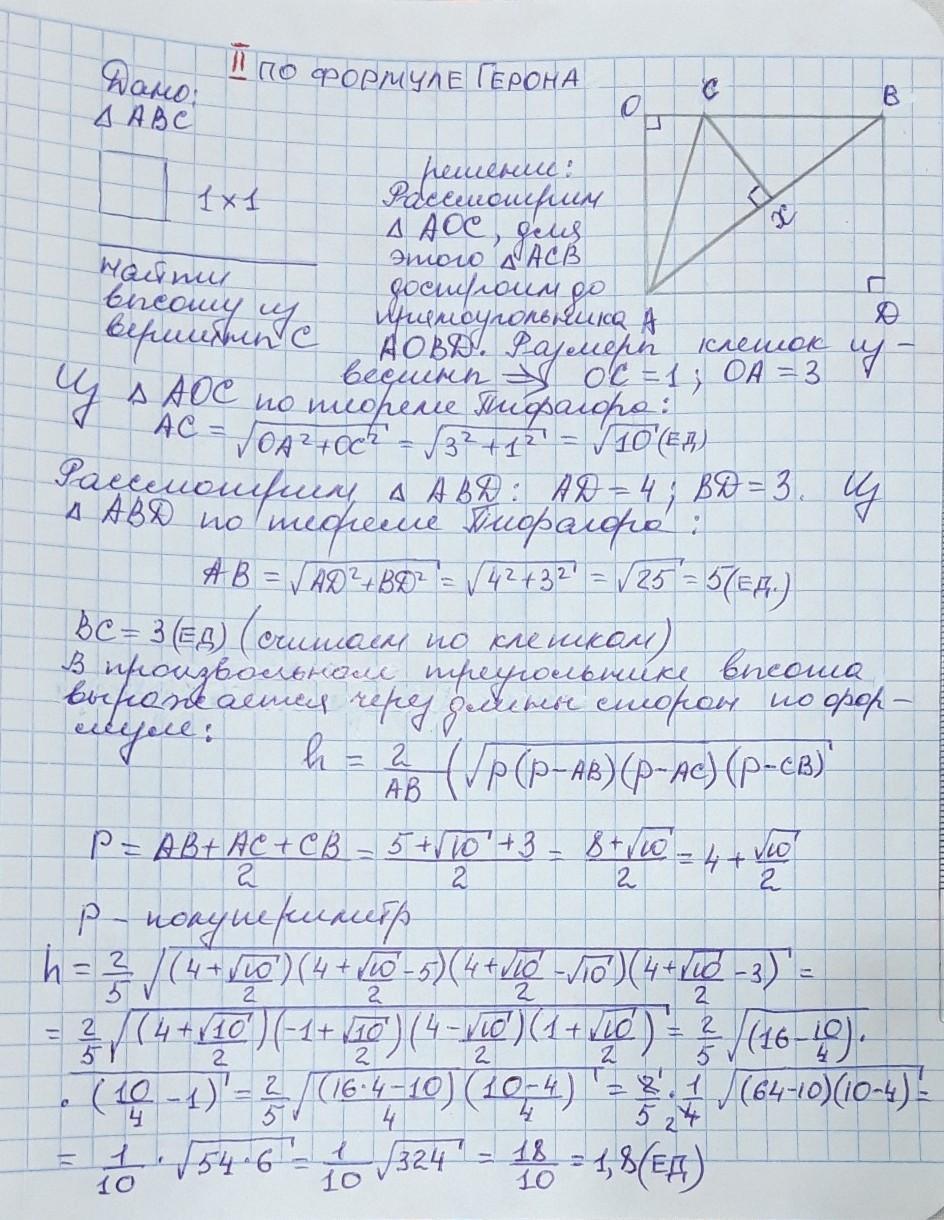 II ПО ФОРМУЛЕ ГЕРОНА
Дано:
Δ ABC
1×1
Найти
высоту из
вершины C
O C B
X
A D
решение:
Рассмотрим
Δ AOC, для
этого Δ ACB
достроим до
прямоугольника
AOBD. Размеры клеток из-
вестны => OC = 1; OA = 3
Из Δ AOC по теореме Пифагора:
AC = √(OA² + OC²) = √(3² + 1²) = √10 (ЕД)
Рассмотрим Δ ABD: AD = 4; BD = 3. Из
Δ ABD по теореме Пифагора:
AB = √(AD² + BD²) = √(4² + 3²) = √25 = 5 (ЕД.)
BC = 3 (ЕД) (считаем по клеткам)
В произвольном треугольнике высота
выражается через длины сторон по фор-
муле:
h = 2/AB (√(p(p-AB)(p-AC)(p-CB))
P = (AB + AC + CB)/2 = (5 + √10 + 3)/2 = (8 + √10)/2 = 4 + √10/2
P - полупериметр
h = 2/5 √((4 + √10/2)(4 + √10/2 - 5)(4 + √10/2 - √10)(4 + √10/2 - 3)) =
= 2/5 √((4 + √10/2)(-1 + √10/2)(4 - √10/2)(1 + √10/2)) = 2/5 √((16 - 10/4) ·
· (10/4 - 1)) = 2/5 √((16·4 - 10)/4 (10 - 4)/4) = 2/5 · 1/4 √((64 - 10)(10 - 4)) =
= 1/10 · √(54·6) = 1/10 √324 = 18/10 = 1,8 (ЕД)